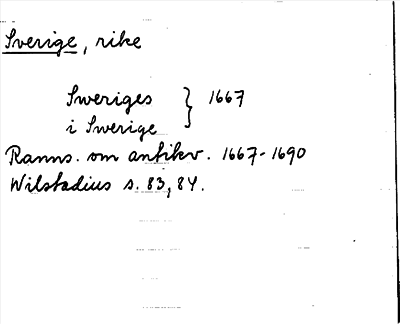 Sverige, rike
Sweriges } 1667
i Swerige
Ranns. om antikv. 1667-1690
Wilstadius s. 83, 84.